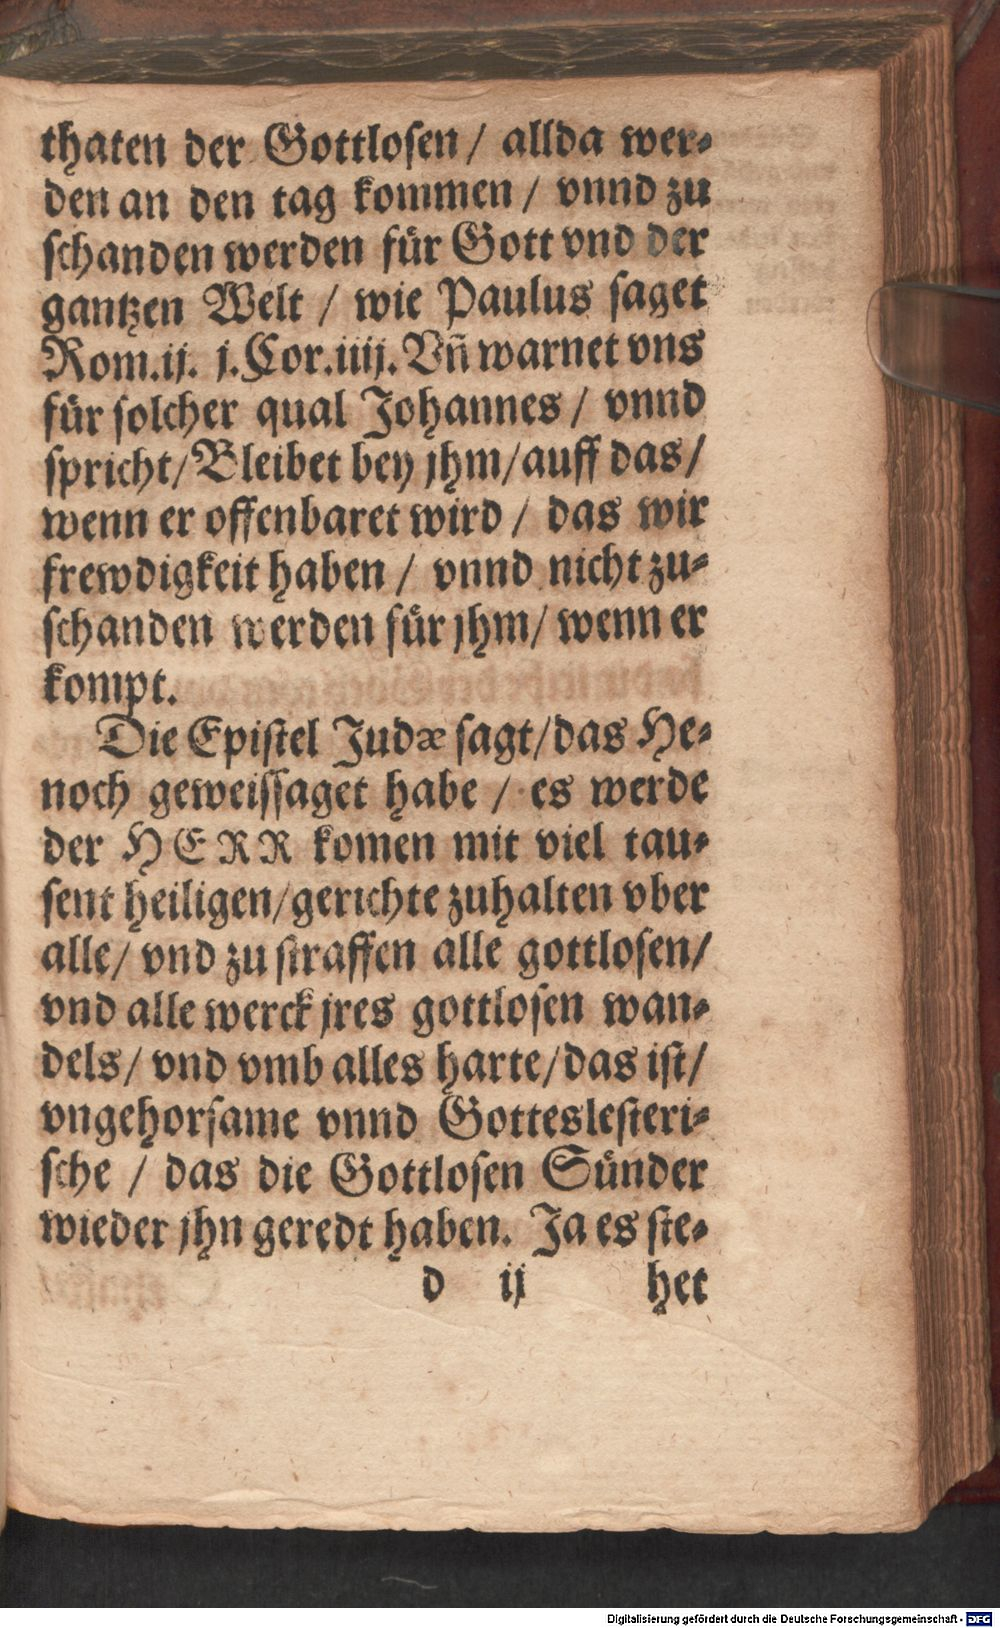 thaten der Gottlosen / allda wer⸗
den an den tag kommen / vnnd zu
schanden werden für Gott vnd der
gantzen Welt / wie Paulus saget
Rom.ij. j.Cor.iiij. Vñ warnet vns
für solcher qual Johannes / vnnd
spricht/ Bleibet bey jhm/ auff das/
wenn er offenbaret wird / das wir
frewdigkeit haben / vnnd nicht zu⸗
schanden werden für jhm/ wenn er
kompt.
Die Epistel Judæ sagt/ das He⸗
noch geweissaget habe / es werde
der HERR komen mit viel tau⸗
sent heiligen/ gerichte zuhalten vber
alle/ vnd zu straffen alle gottlosen/
vnd alle werck jres gottlosen wan⸗
dels/ vnd vmb alles harte/ das ist/
vngehorsame vnnd Gotteslesteri⸗
sche / das die Gottlosen Sünder
wieder jhn geredt haben. Ja es ste⸗
d ij het
Digitalisierung gefördert durch die Deutsche Forschungsgemeinschaft - DFG